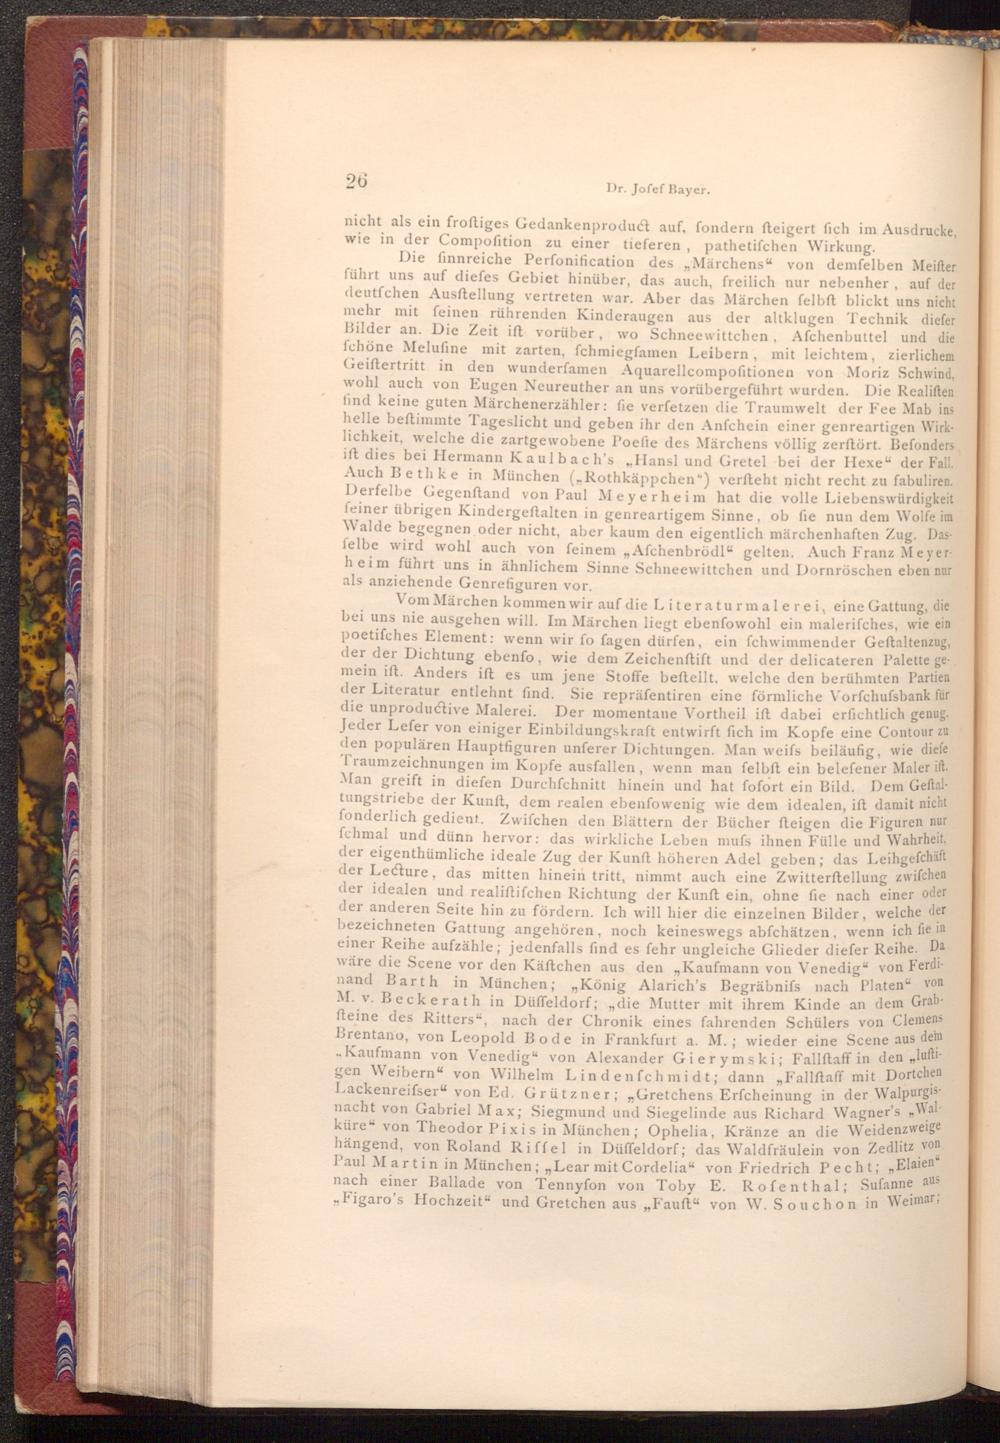 26
Dr. Joſef Bayer.
nicht als ein froſtiges Gedankenproduct auf, ſondern ſteigert ſich im Ausdrucke,
wie in der Compoſition zu einer tieferen, pathetiſchen Wirkung.
Die ſinnreiche Perſonification des „Märchens“ von demſelben Meiſter
führt uns auf dieſes Gebiet hinüber, das auch, freilich nur nebenher, auf der
deutſchen Ausſtellung vertreten war. Aber das Märchen ſelbſt blickt uns nicht
mehr mit ſeinen rührenden Kinderaugen aus der altklugen Technik dieſer
Bilder an. Die Zeit iſt vorüber, wo Schneewittchen, Aſchenbuttel und die
ſchöne Meluſine mit zarten, ſchmiegſamen Leibern, mit leichtem, zierlichem
Geiſtertritt in den wunderſamen Aquarellcompoſitionen von Moriz Schwind,
wohl auch von Eugen Neureuther an uns vorübergeführt wurden. Die Realiſten
ſind keine guten Märchenerzähler: ſie verſetzen die Traumwelt der Fee Mab ins
helle beſtimmte Tageslicht und geben ihr den Anſchein einer genreartigen Wirk-
lichkeit, welche die zartgewobene Poeſie des Märchens völlig zerſtört. Beſonders
iſt dies bei Hermann Kaulbach's „Hansl und Gretel bei der Hexe“ der Fall.
Auch Bethke in München („Rothkäppchen“) verſteht nicht recht zu fabuliren.
Derſelbe Gegenſtand von Paul Meyerheim hat die volle Liebenswürdigkeit
ſeiner übrigen Kindergeſtalten in genreartigem Sinne, ob ſie nun dem Wolfe im
Walde begegnen oder nicht, aber kaum den eigentlich märchenhaften Zug. Das-
ſelbe wird wohl auch von ſeinem „Aſchenbrödl“ gelten. Auch Franz Meyer-
heim führt uns in ähnlichem Sinne Schneewittchen und Dornröschen eben nur
als anziehende Genrefiguren vor.
Vom Märchen kommen wir auf die Literaturmalerei, eine Gattung, die
bei uns nie ausgehen will. Im Märchen liegt ebenſowohl ein maleriſches, wie ein
poetiſches Element: wenn wir ſo ſagen dürfen, ein ſchwimmender Geſtaltenzug,
der der Dichtung ebenſo, wie dem Zeichenſtift und der delicateren Palette ge-
mein iſt. Anders iſt es um jene Stoffe beſtellt, welche den berühmten Partien
der Literatur entlehnt ſind. Sie repräſentiren eine förmliche Vorſchuſsbank für
die unproductive Malerei. Der momentane Vortheil iſt dabei erſichtlich genug.
Jeder Leſer von einiger Einbildungskraft entwirft ſich im Kopfe eine Contour zu
den populären Hauptfiguren unſerer Dichtungen. Man weiſs beiläufig, wie dieſe
Traumzeichnungen im Kopfe ausfallen, wenn man ſelbſt ein beleſener Maler iſt.
Man greift in dieſen Durchſchnitt hinein und hat ſofort ein Bild. Dem Geſtal-
tungstriebe der Kunſt, dem realen ebenſowenig wie dem idealen, iſt damit nicht
ſonderlich gedient. Zwiſchen den Blättern der Bücher ſteigen die Figuren nur
ſchmal und dünn hervor: das wirkliche Leben muſs ihnen Fülle und Wahrheit,
der eigenthümliche ideale Zug der Kunſt höheren Adel geben; das Leihgeſchäft
der Lecture, das mitten hinein tritt, nimmt auch eine Zwitterſtellung zwiſchen
der idealen und realiſtiſchen Richtung der Kunſt ein, ohne ſie nach einer oder
der anderen Seite hin zu fördern. Ich will hier die einzelnen Bilder, welche der
bezeichneten Gattung angehören, noch keineswegs abſchätzen, wenn ich ſie in
einer Reihe aufzähle; jedenfalls ſind es ſehr ungleiche Glieder dieſer Reihe. Da
wäre die Scene vor den Käſtchen aus den „Kaufmann von Venedig“ von Ferdi-
nand Barth in München; „König Alarich's Begräbniſs nach Platen“ von
M. v. Beckerath in Düſſeldorf; „die Mutter mit ihrem Kinde an dem Grab-
ſteine des Ritters“, nach der Chronik eines fahrenden Schülers von Clemens
Brentano, von Leopold Bode in Frankfurt a. M.; wieder eine Scene aus dem
„Kaufmann von Venedig“ von Alexander Gierymski; Fallſtaff in den „luſti-
gen Weibern“ von Wilhelm Lindenſchmidt; dann „Fallſtaff mit Dortchen
Lackenreiſser“ von Ed. Grützner; „Gretchens Erſcheinung in der Walpurgis-
nacht von Gabriel Max; Siegmund und Siegelinde aus Richard Wagner's „Wal-
küre“ von Theodor Pixis in München; Ophelia, Kränze an die Weidenzweige
hängend, von Roland Riſſel in Düſſeldorf; das Waldfräulein von Zedlitz von
Paul Martin in München; „Lear mit Cordelia“ von Friedrich Pecht; „Elaien“
nach einer Ballade von Tennyſon von Toby E. Roſenthal; Suſanne aus
„Figaro's Hochzeit“ und Gretchen aus „Fauſt“ von W. Souchon in Weimar;